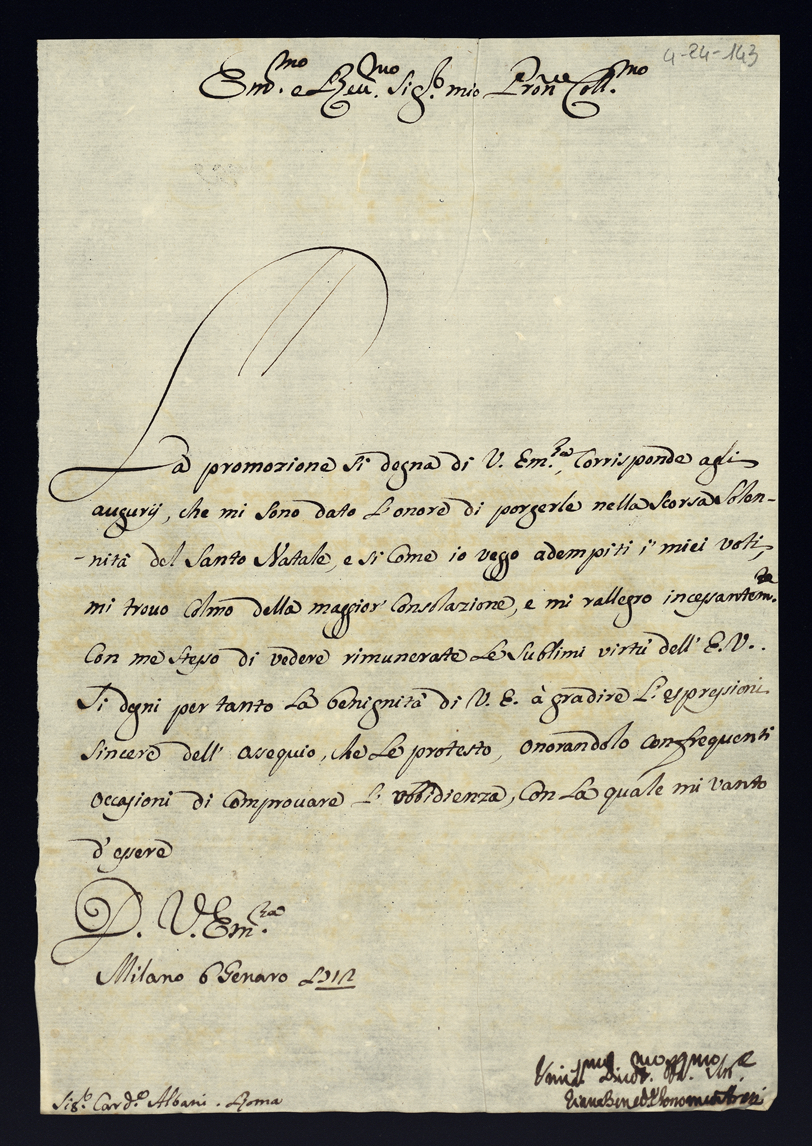 4-24-143
Em.mo e Reu.mo Sig.r mio Pron.e Coll.mo
La promozione si degna di V. Em.za, Corrisponde agli
augurij, che mi sono dato L'onore di porgerle nella Scorsa Solen-
-nità del Santo Natale, e si Come io veggo adempiti i miei voti,
mi trovo Colmo della maggior Consolazione, e mi rallegro incessantem.te
Con me stesso di vedere rimunerate Le Sublimi virtù dell' E. V..
Si degni per tanto La benignità di V. E. à gradire L'espressioni
Sincere dell' ossequio, che Le protesto, onorandolo con frequenti
occasioni di Comprouare L' vbbidienza, Con La quale mi vanto
d'essere
D. V. Em.za
Milano 6 Genaro
Vmil.mo Diuot.mo
Sig.r Card.e Albani . Roma